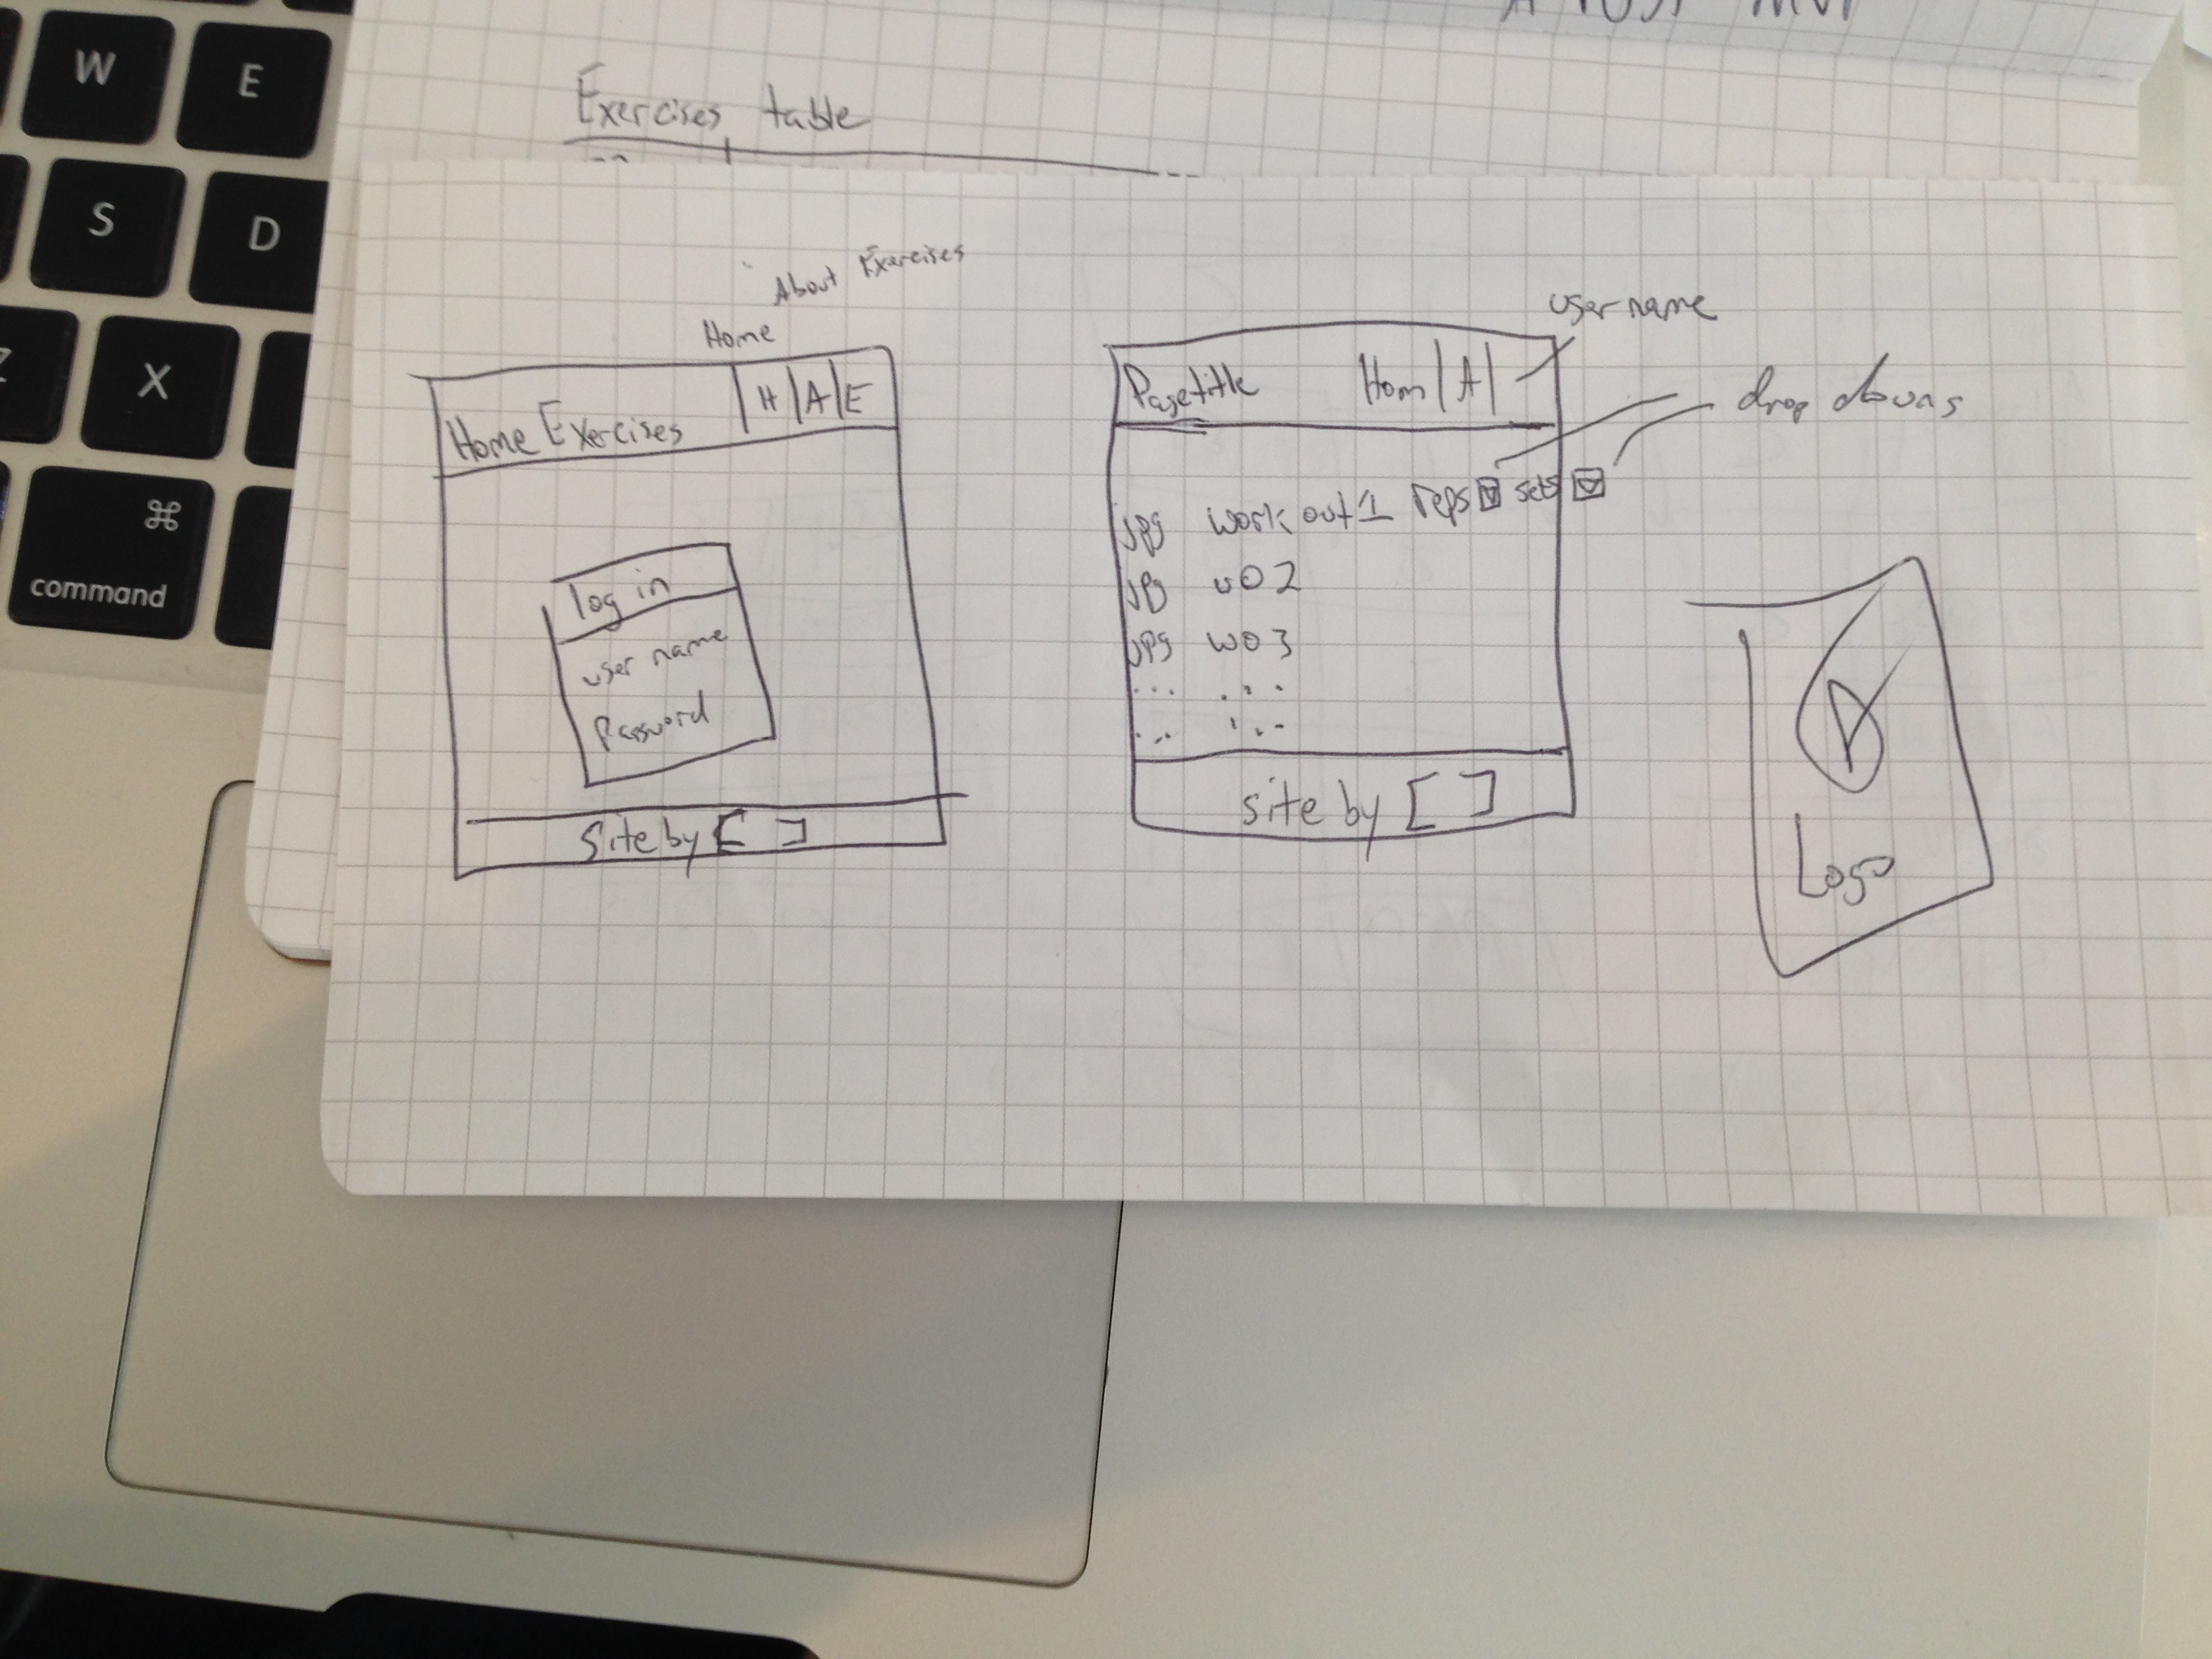 W E
S D
Z X
⌘
command
Exercises table
About Exercises
Home
Home Exercises H A E
log in
user name
Password
Site by [ ]
user name
Page title Hom A
drop downs
jpg work out 1 reps sets
jpg wo 2
jpg wo 3
... ...
... ...
site by [ ]
Logo